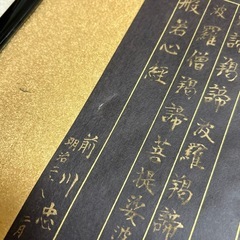 諦羯諦波羅羯諦
波羅僧羯諦菩提娑波
般若心経
前川忠
明治
二月